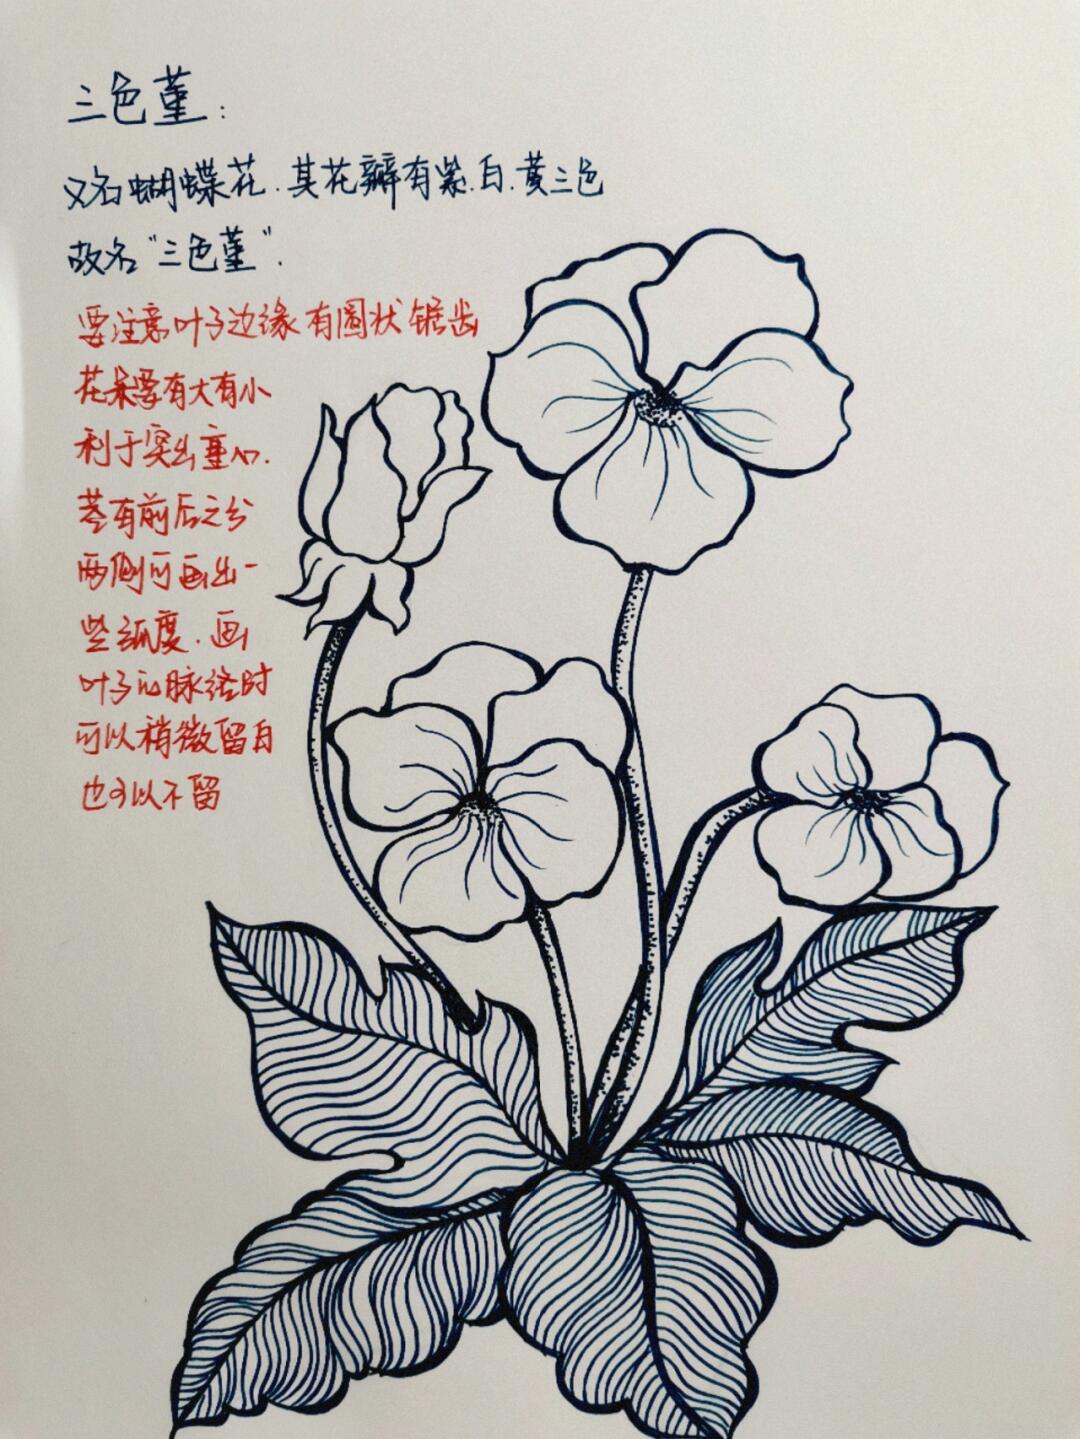 三色堇：
又名蝴蝶花.其花瓣有紫.白.黄三色
故名“三色堇”.
要注意叶子边缘有圆状锯齿
花朵要有大有小
利于突出重心.
茎有前后之分
两侧可画出一
些弧度.画
叶子的脉络时
可以稍微留白
也可以不留